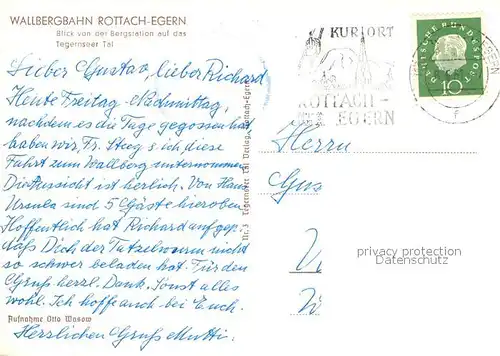 WALLBERGBAHN ROTTACH-EGERN
Blick von der Bergstation auf das
Tegernseer Tal
Lieber Gustav, lieber Richard
Heute Freitag-Nachmittag,
nachdem es die Tage gegossen hat
haben wir, Fr. Steeg & ich diese
Fahrt zum Wallberg unternommen
Die Aussicht ist herlich. Von Haus
Ursula sind 5 Gäste hieroben
Hoffentlich hat Richard aufgep.
daß Dich der Tatzelwurm nicht
so schwer beladen hat. Für den
Gruß herzl. Dank. Sonst alles
wohl. Ich hoffe auch bei Euch.
Aufnahme Otto Wasow
Herzlichen Gruß Mutti.
Nr. 3 Tegernseer Tal Verlag, Rottach-Egern
KURORT
ROTTACH-
EGERN
DEUTSCHE BUNDESPOST
10
F
Herrn
Gus
privacy protection
Datenschutz